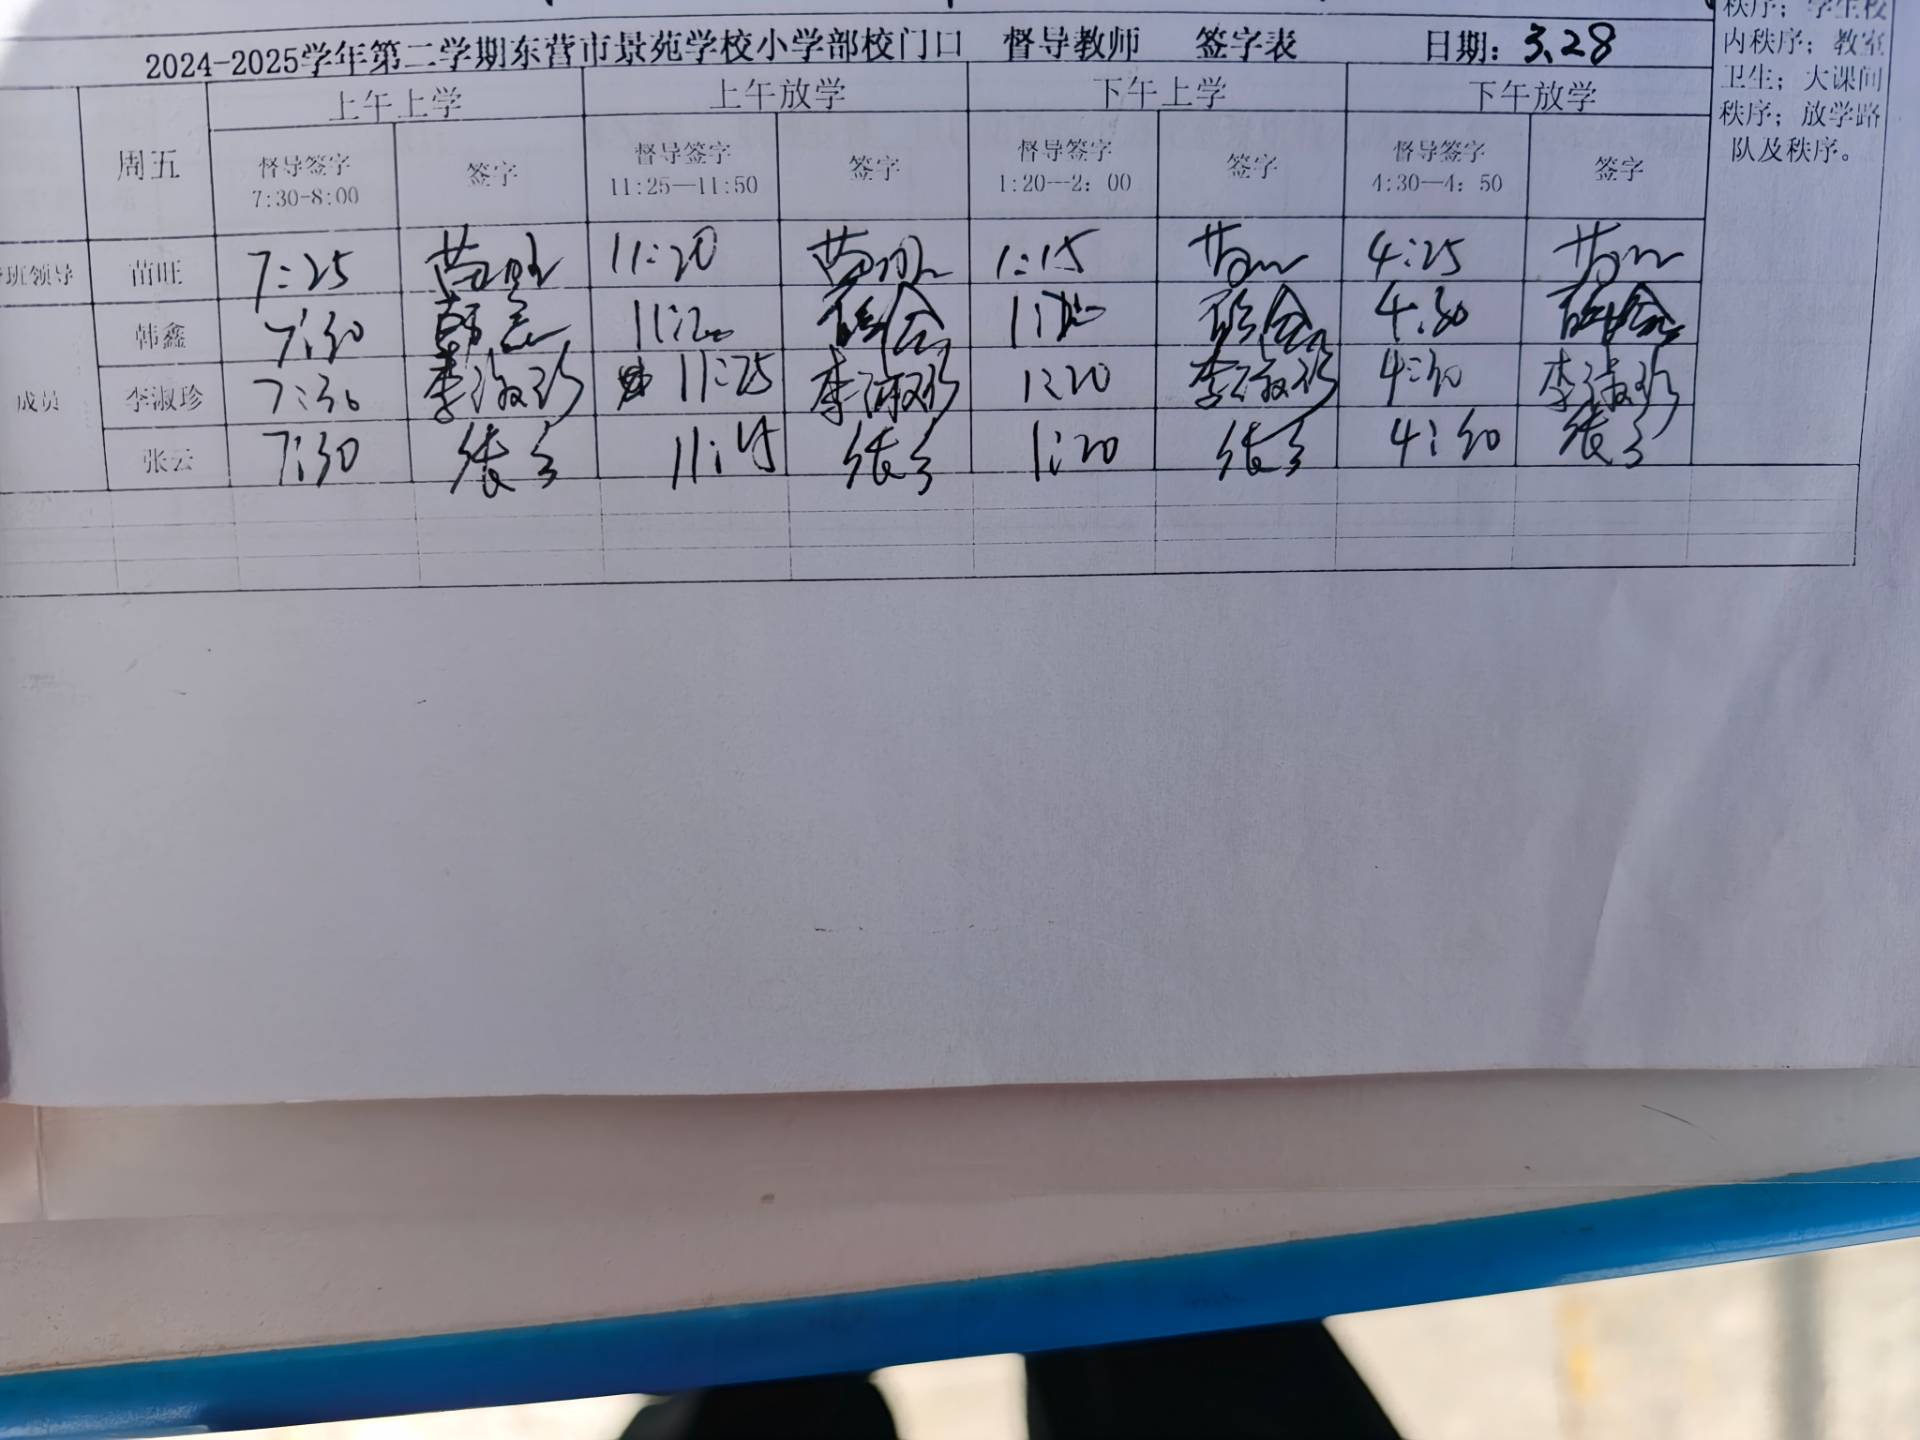 秩序；学生校
内秩序；教室
卫生；大课间
秩序；放学路
队及秩序。
2024-2025学年第二学期东营市景苑学校小学部校门口 督导教师 签字表 日期：3.28
周五 上午上学 上午放学 下午上学 下午放学
督导签字 签字 督导签字 签字 督导签字 签字 督导签字 签字
7:30-8:00 11:25—11:50 1:20--2：00 4:30—4：50
班领导 苗旺 7:25 苗旺 11:20 苗旺 1:15 4:25
韩鑫 7:30 韩鑫 11:20 4:30
成员 李淑珍 7:30 李淑珍 11:25 李淑珍 1:20 李淑珍 4:30 李淑珍
张云 7:30 张云 张云 1:20 张云 4:30 张云